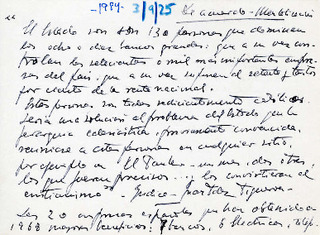 -1984- 3/9/25
De acuerdo-
"
El Estado son son 130 personas que dominan
los ocho o diez bancos grandes: que a su vez con-
trolan las seiscientas o mil más importantes empre-
sas del país: que a su vez suponen el setenta y tantos
por ciento de la renta nacional.
Estas personas son todas radicalmente católicas.
Sería una solución al problema del Estado que la
jerarquía eclesiástica, previamente convencida,
reuniera a estas personas en cualquier sitio,
por ejemplo en El Paular - un mes, dos, tres,
los que fueran precisos ... y los convirtieran al
cristianismo" -
Las 20 empresas españolas que han obtenido en
1968 mayores beneficios: 7 bancos, 6 Eléctricas,